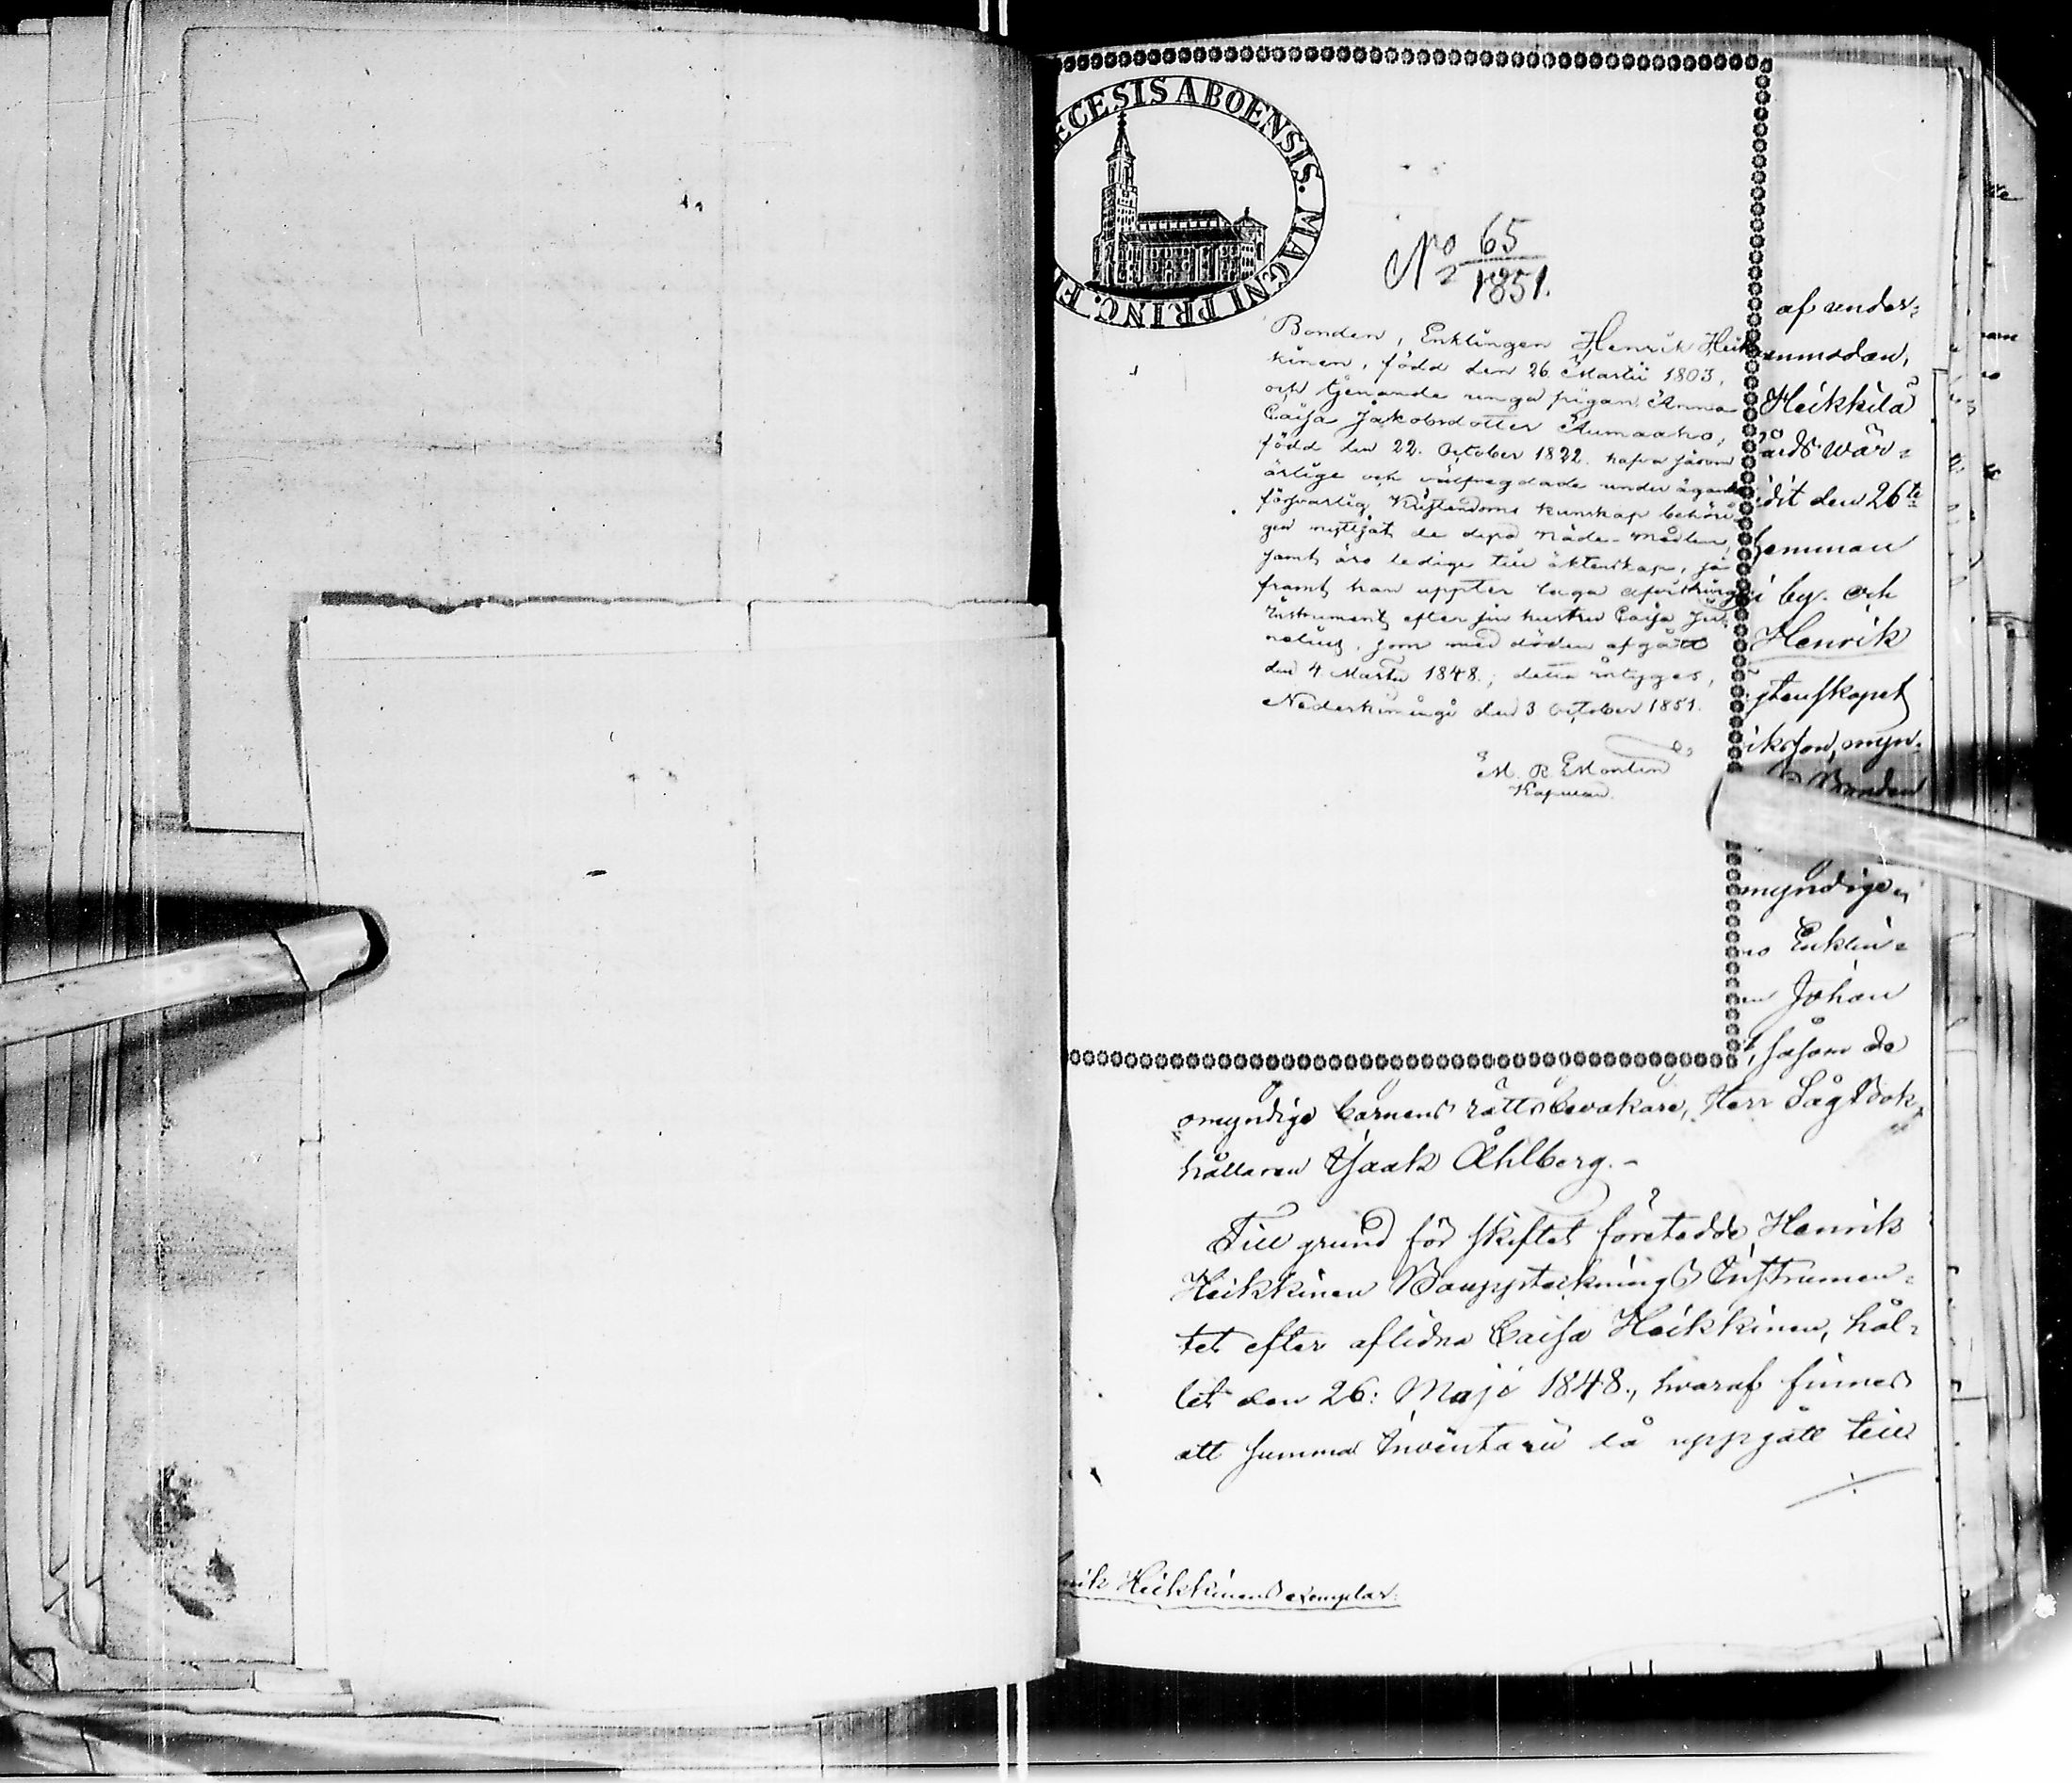 ECESIS ABOENSIS. MAGNI PRINC. F
No 65
1851.
Bonden, Enklingen Henrik Heik
kinen, född den 26 Martii 1803,
och tjenande unga pigan Anna
Caisa Jakobsdotter Aumaaho,
född den 22. October 1822. hafva såsom
ärlige och välfregdade under ägande
försvarlig Kristendoms kunskap behöri
gen nyttjat de dyra Nåde-Medlen,
samt äro ledige till äktenskap, så
framt han uppter laga afvittrings
Instrument efter sin hustru Caisa
som med döden afgått
den 4 Martii 1848.; detta intygges,
Nederkiminge den 3 October 1851.
Kapellan.
af under-
Heikkilä
ards wär-
idit den 26te
hemman
i by. och
Henrik
gtenskapet
ikson, myn-
Bonden
myndige,
Enklin-
Johan
såsom de
omyndige barnens rättsbevakare, Herr Lägsbok
hållaren Isaak Åhlberg. -
Till grund för skiftet företedde Henrik
Heikkinen Bouppteckningss Instrumen-
tet efter aflidna Caisa Heikkinen, hål-
let den 26: Maji 1848., hvaraf finnes
att summa Inventarii då uppgått till
rik Heikkinens exemplar.